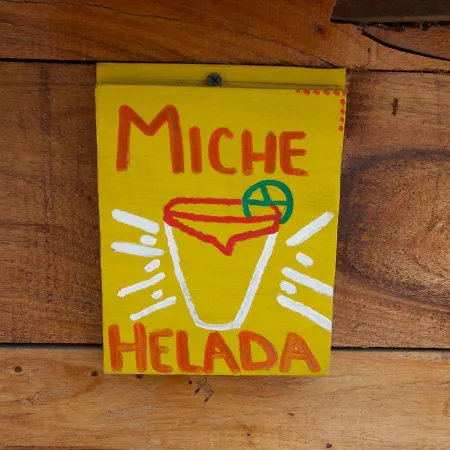 MICHE
HELADA